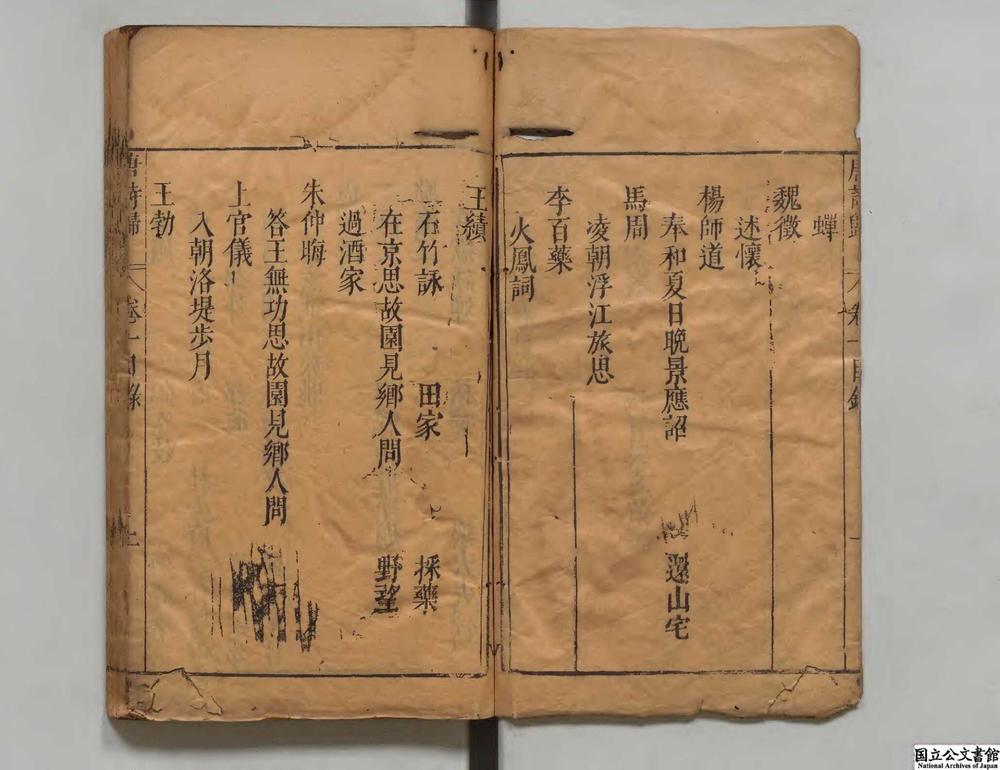 蟬
魏徵
述懷
楊師道
奉和夏日晚景應詔　還山宅
馬周
凌朝浮江旅思
李百藥
火鳳詞
王績
石竹詠　田家　採藥
在京思故園見鄉人問　野望
過酒家
朱仲晦
答王無功思故園見鄉人問
上官儀
入朝洛堤步月
王勃
唐詩歸　卷一目錄
国立公文書館
National Archives of Japan